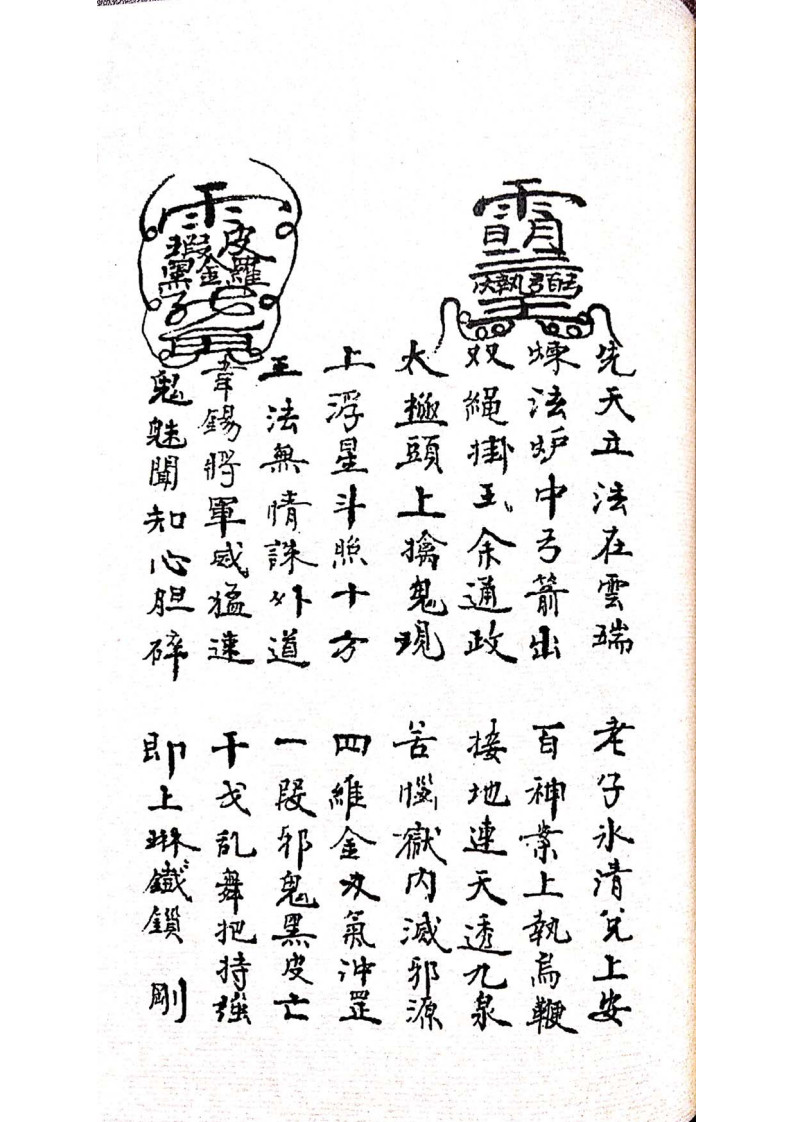 先天立法在雲端 老子氷清兌上安
煉法炉中弓箭出 百神業上執烏鞭
双繩掛玉余通政 接地連天透九泉
太極頭上擒鬼現 苦惱獄内滅邪源
上浮星斗照十方 四維金水氣沖罡
王法無情誅外道 一段邪鬼黑皮亡
韋錫將軍威猛速 干戈乱舞把持強
鬼魅聞知心胆碎 即上琳鐵鎖剛